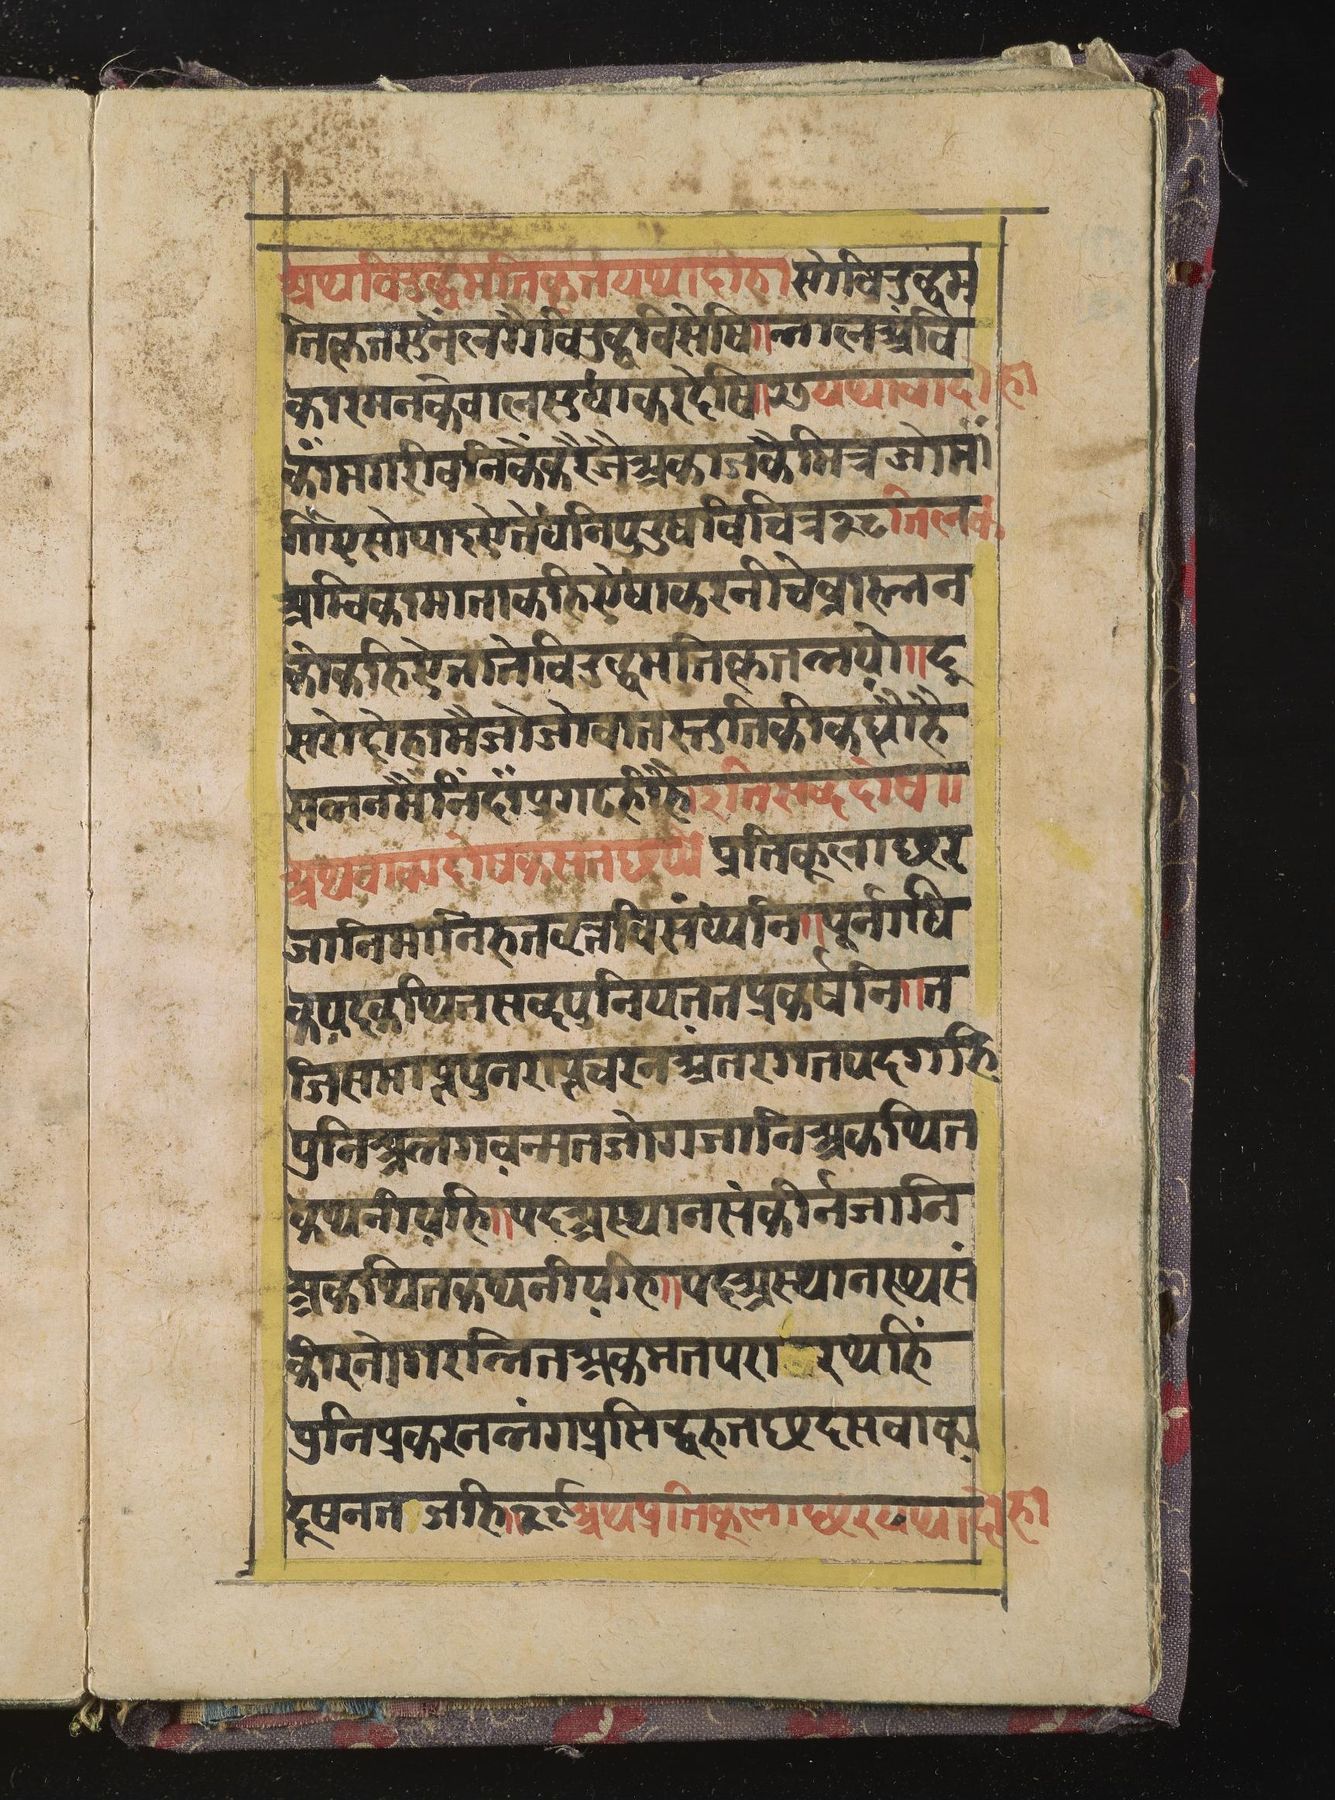 अथविरुद्धमतिकृतयथादोहा सोविरुद्धम
तिकृतसुनतलगैविरुद्धविसेषि॥भालअंवि
कारमनकेवालसुधाकरदेषि॥२७यथावादोहा
कांमगरीवनिकेकरैंजेअकाजकेमित्रजोमां
गिऐसोपाइऐतेधनिपुरुषविचित्र२८तिलक
अम्बिकामाताकहिऐधाकरनीचेब्राह्मन
कोकहिऐतातेविरुद्धमतिकृतभयो॥दू
सरोदोहामैजोजोवातस्तुतिकीकहीहै
सवनमैनिंदाप्रगटहीहै।इतिसब्ददोष॥
अथवाक्यदोषकथनछप्पै प्रतिकूलाछर
जानिमानिहतवृत्तविसंध्यनि॥पूर्नाधि
कपदकथितसब्दपुनियततप्रकर्षनि॥त
जिसमाप्तपुनराप्तचरनअंतरगतपदगहि
पुनिअभगवन्मतजोगजानिअकथित
कथनीयहि॥पदअस्थानसंकीर्नजानि
अकथितकथनीयहि॥पदअस्थानस्थसं
कीरनोगरभितअक्रमतपरारथहिं
पुनिप्रकरनभंगप्रसिद्धहतछंदसवाक्य
दूषनतजहि॥२९अथप्रतिकूलाछरयथादोहा